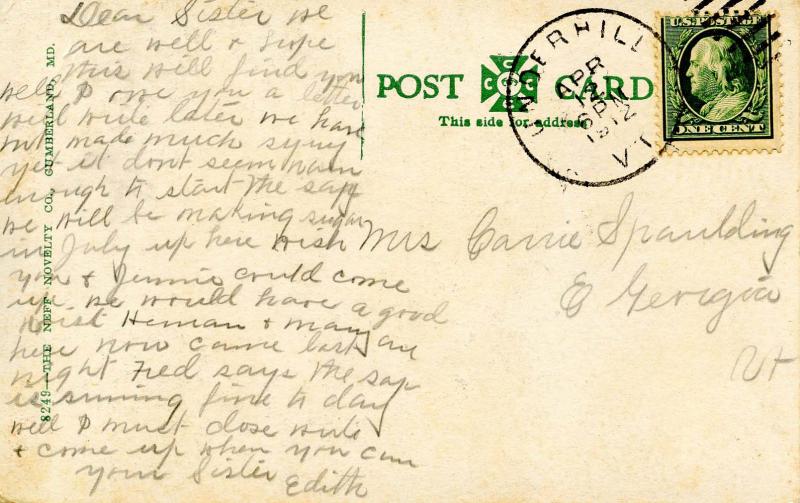 Dear Sister we
are well & hope
this will find you
well I owe you a letter
will write later we have
not made much syrup
yet it dont seem warm
enough to start the sap
we will be making sugar
in July up here wish
you & Jennie could come
up we would have a good
Heman & Mary
here now came last
night Fred says the sap
is running fine to day
well I must close write
& come up when you can
your Sister
Edith
8249—THE NEFF NOVELTY CO., CUMBERLAND, MD.
POST CARD
This side for address
UNDERHILL
APR
12
6 PM
1912
VT
U.S. POSTAGE
ONE CENT
Mrs Carrie Spaulding
E Georgia
Vt